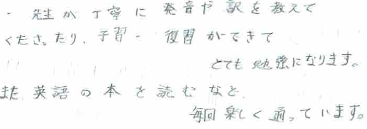 ・先生が丁寧に発音や訳を教えて
くださったり、予習・復習ができて
とても勉強になります。
また英語の本を読むなど、
毎回楽しく通っています。